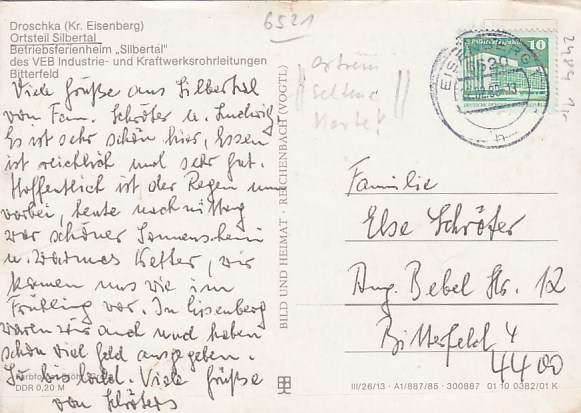 Droschka (Kr. Eisenberg)
Ortsteil Silbertal
Betriebsferienheim „Silbertal"
des VEB Industrie- und Kraftwerksrohrleitungen
Bitterfeld
Viele Grüße aus Silbertal
von Fam. Schröter u. Ludwig
Es ist sehr schön hier, Essen
ist reichlich und sehr gut.
Hoffentlich ist der Regen nun
vorbei, heute nachmittag
war schöner Sonnenschein
u. warmes Wetter, wir
kamen uns vie im
Frühling vor. In Eisenberg
waren wir auch und haben
schon viel Geld ausgegeben.
So bis bald. Viele Grüße
von Schröters
DDR 0,20 M
BILD UND HEIMAT · REICHENBACH (VOGTL)
6521
seltene
Karte!
EISENBERG
6520
10
Familie
Else Schröter
Aug. Bebel Str. 12
Bitterfeld 4
4400
III/26/13 · A1/887/85 · 300887 01 10 0382/01 K